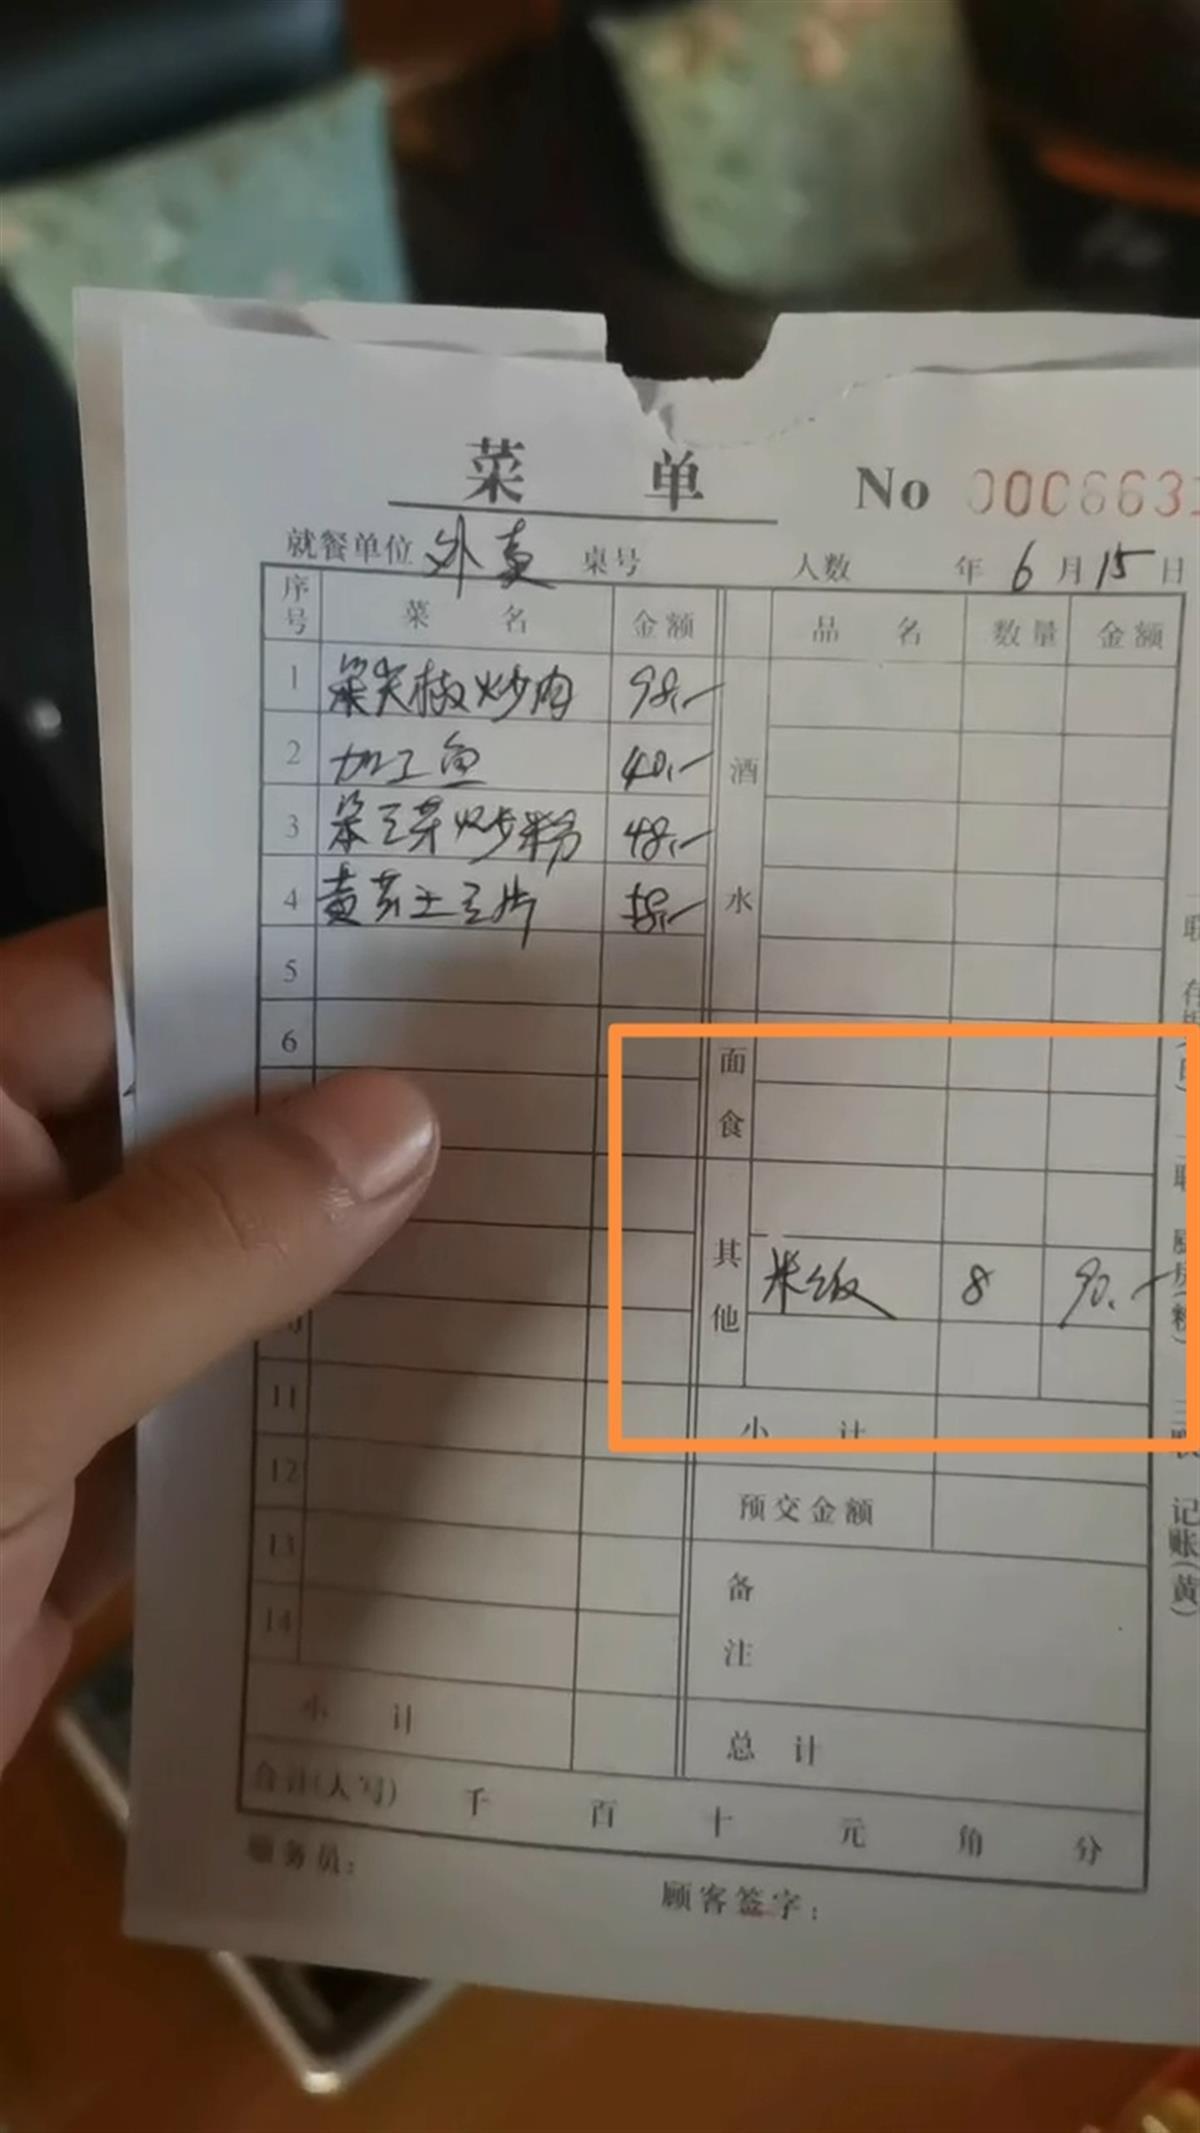 菜 单 No 0006631
就餐单位 外卖 桌号 人数 年 6 月 15 日
序号 菜 名 金额 品 名 数量 金额
1 笨尖椒炒肉 98.-
2 加工鱼 40.-
3 笨豆芽炒粉 48.-
4 黄芪土豆片
5
6
11
12
13
14
小 计
酒水
面食
其他
米饭 8 90.-
小 计
预交金额
备注
总 计
合计(大写) 千 百 十 元 角 分
服务员:
顾客签字:
记账(黄)